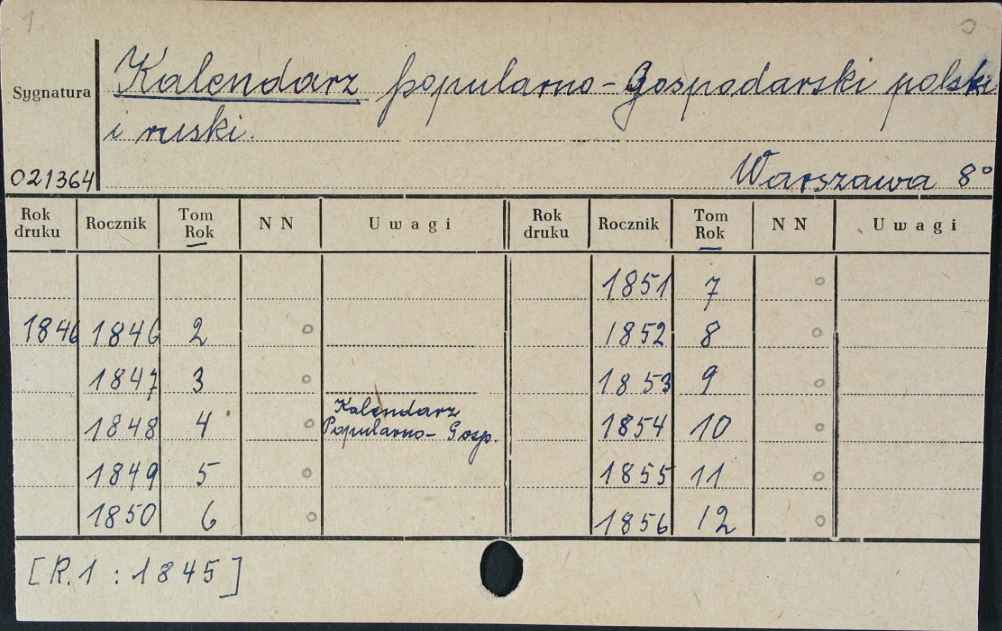 1.
Sygnatura
Kalendarz popularno-Gospodarski polski
i ruski.
021364
Warszawa 8°
Rok druku Rocznik Tom Rok N N Uwagi Rok druku Rocznik Tom Rok N N Uwagi
1851 7 o
1846 1846 2 o 1852 8 o
1847 3 o 1853 9 o
1848 4 o Kalendarz Popularno-Gosp. 1854 10 o
1849 5 o 1855 11 o
1850 6 o 1856 12 o
[R.1 : 1845]